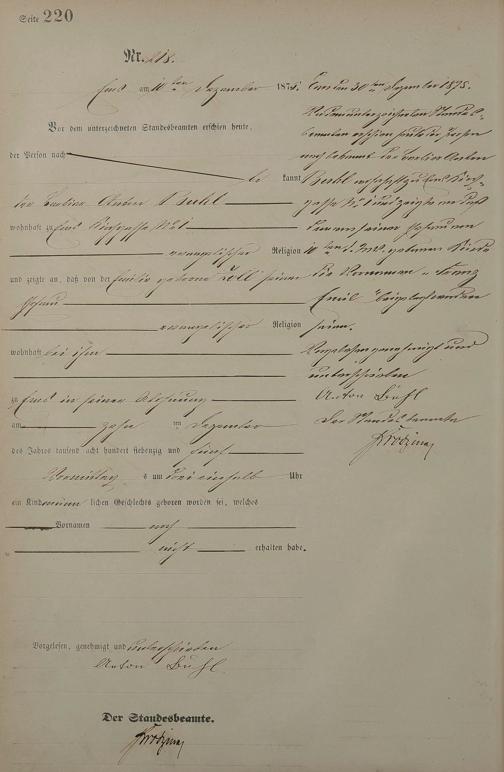 Seite 220
Nr. 218.
Ems am 10ten Dezember 1875
Vor dem unterzeichneten Standesbeamten erschien heute,
der Person nach
be kannt
Anton Buhl
wohnhaft zu Ems Kirchgasse No 1
evangelischer Religion
und zeigte an, daß von der Emilie geborne seiner
Ehefrau
evangelischer Religion
wohnhaft bei ihm
zu Ems in seiner Wohnung
am zehn ten Dezember
des Jahres tausend acht hundert siebenzig und fünf
Vormittags um drei einhalb Uhr
ein Kind männ lichen Geschlechts geboren worden sei, welches
Vornamen noch
nicht erhalten habe.
Vorgelesen, genehmigt und unterschrieben
Anton Buhl
Der Standesbeamte.
Ems am 30ten Dezember 1875.
Dem unterzeichneten Standes-
beamten erschien heute der Person
nach bekannt der Anton
Buhl wohnhaft zu Ems Kirch-
gasse No 1 und zeigte an daß
dem von seiner Ehefrau am
10ten d. Mts. gebornen Kinde
die Vornamen
Emil beigelegt worden
seien.
Vorgelesen genehmigt und
unterschrieben
Anton Buhl
Der Standesbeamte